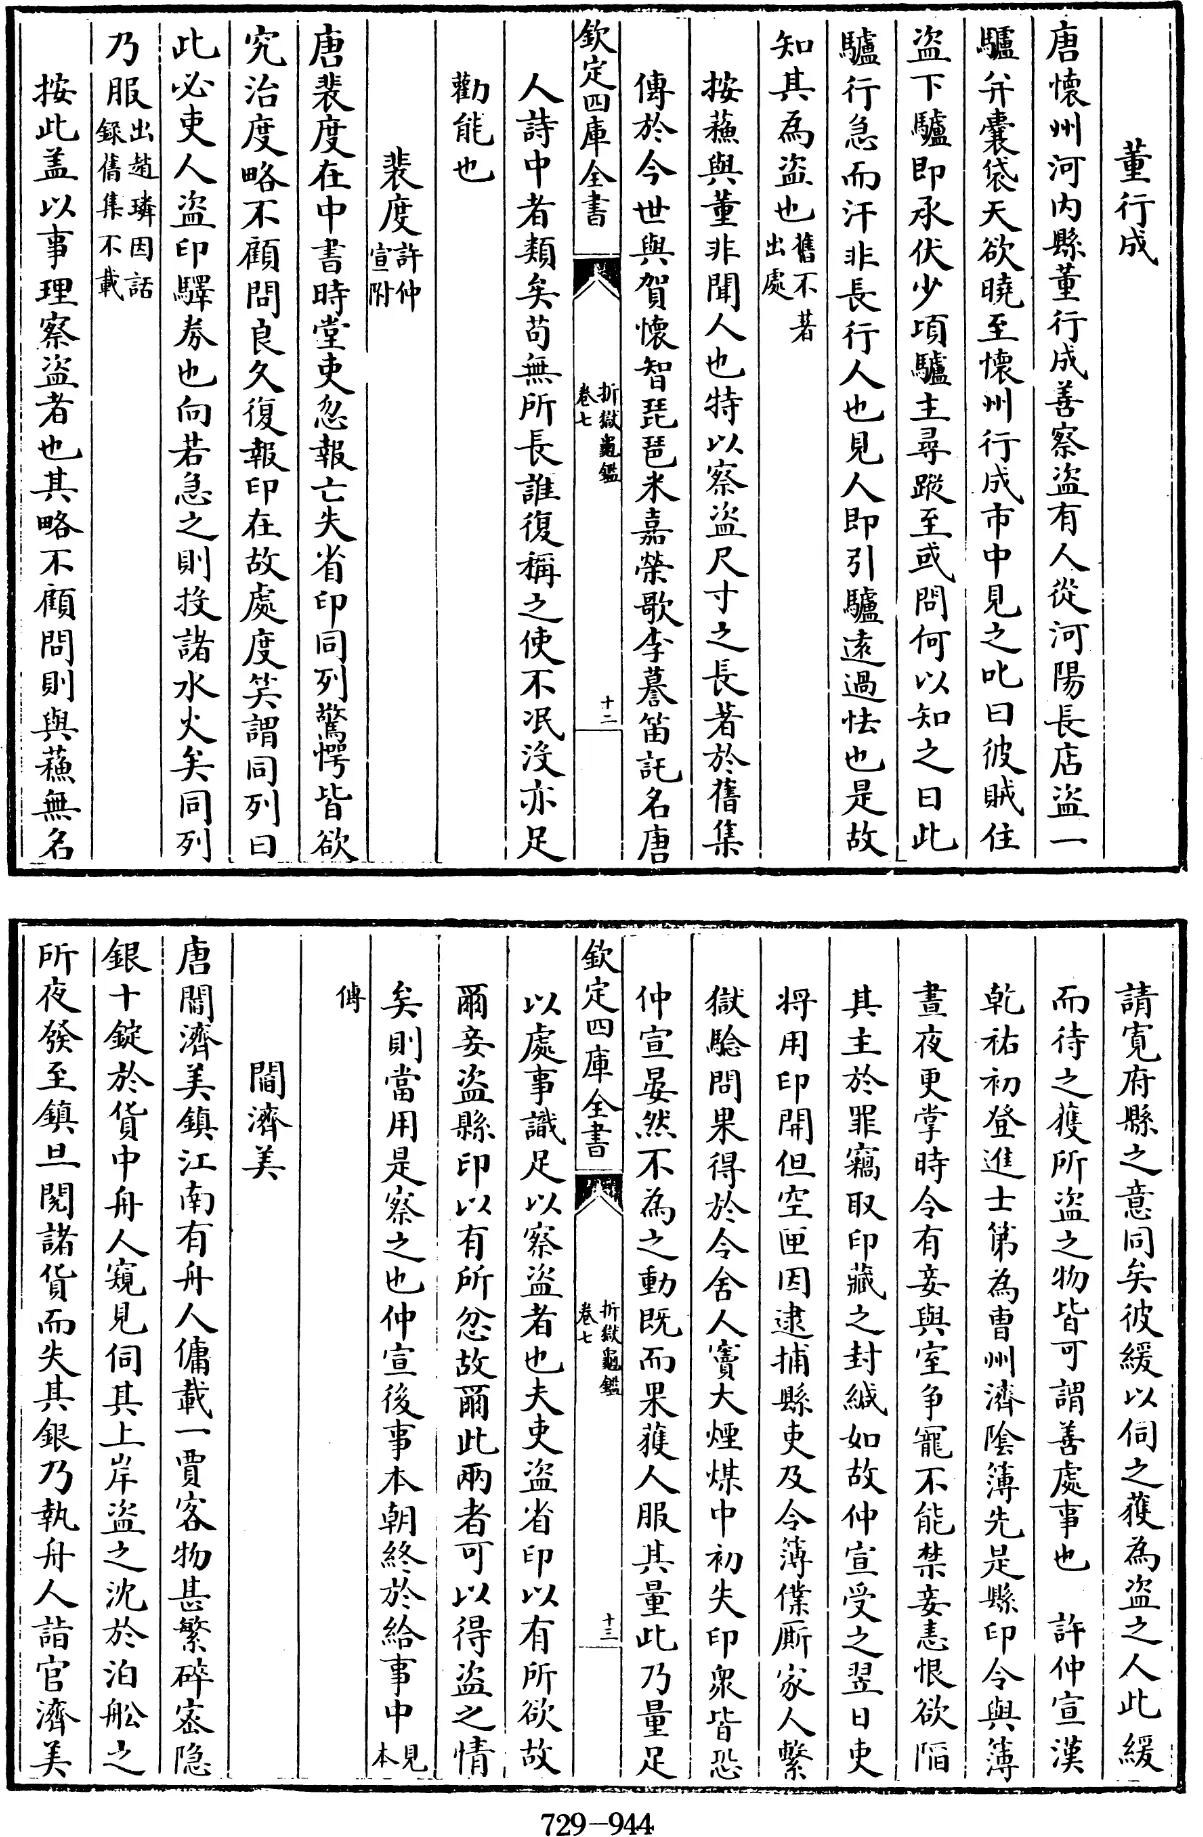 董行成
唐懷州河內縣董行成善察盜有人從河陽長店盜一
驢并囊袋天欲曉至懷州行成市中見之叱曰彼賊住
盜下驢即承伏少頃驢主尋蹤至或問何以知之曰此
驢行急而汗非長行人也見人即引驢遠過怯也是故
知其為盜也舊不著出處
按蘓與董非聞人也特以察盜尺寸之長著於舊集
傳於今世與賀懷智琵琶米嘉榮歌李謩笛託名唐
欽定四庫全書 折獄龜鑑卷七 十二
人詩中者類矣苟無所長誰復稱之使不泯沒亦足
勸能也
裴度許仲宣附
唐裴度在中書時堂吏忽報亡失省印同列驚愕皆欲
究治度略不顧問良久復報印在故處度笑謂同列曰
此必吏人盜印驛券也向若急之則投諸水火矣同列
乃服出趙璘因話錄舊集不載
按此盖以事理察盜者也其略不顧問則與蘓無名
請寬府縣之意同矣彼緩以伺之獲為盜之人此緩
而待之獲所盜之物皆可謂善處事也 許仲宣漢
乾祐初登進士第為曹州濟陰簿先是縣印令與簿
晝夜更掌時令有妾與室爭寵不能禁妾恚恨欲陷
其主於罪竊取印藏之封緘如故仲宣受之翌日吏
將用印開但空匣因逮捕縣吏及令簿㒒厮家人繫
獄驗問果得於令舍人竇大煙煤中初失印衆皆恐
仲宣晏然不為之動既而果獲人服其量此乃量足
欽定四庫全書 折獄龜鑑卷七 十三
以處事識足以察盜者也夫吏盜省印以有所欲故
爾妾盜縣印以有所忿故爾此兩者可以得盜之情
矣則當用是察之也仲宣後事本朝終於給事中見本
傳
閻濟美
唐閻濟美鎮江南有舟人傭載一賈客物甚繁碎密隐
銀十錠於貨中舟人窺見伺其上岸盜之沈於泊舩之
所夜發至鎮旦閱諸貨而失其銀乃執舟人詣官濟美
729-944